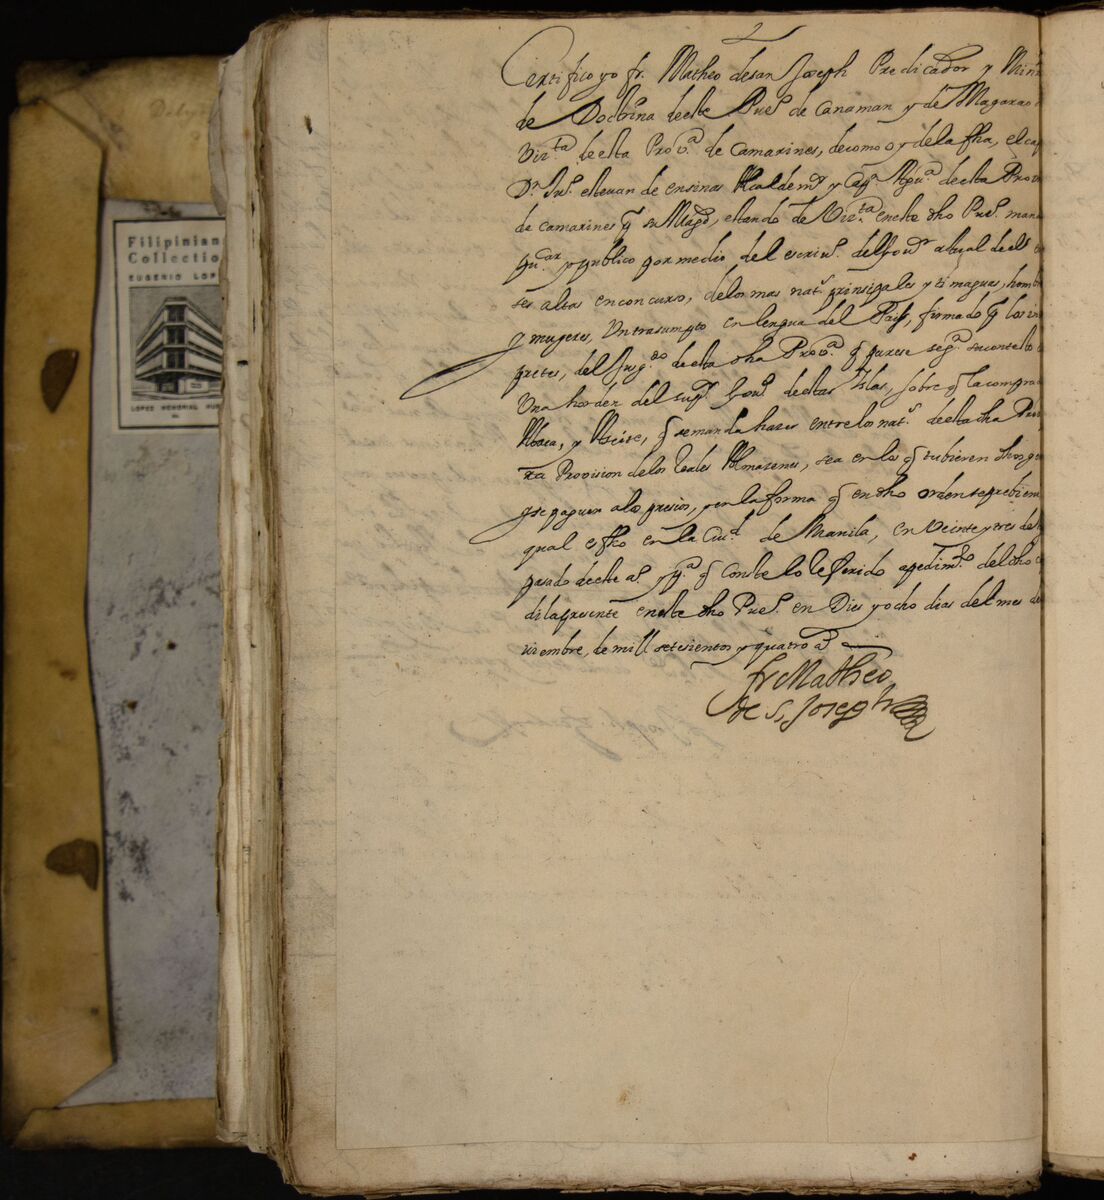 Filipinian
Collectio
EUGENIO LOP
LOPEZ MEMORIAL MUS
Certifico yo fr. Matheo de san Joseph Predicador y Min
de Doctrina deeste Pueº de Canaman y de Magarao
Vizta deesta Prova de Camarines, de como oy dela fha, el cap
Dn Juº estevan de ensinas Alcalde mr y Capn Aguª deesta Prov
de camarines pr su Magd, estando de Vizta eneste dho Pueº man
y publico por medio del escrivº del Govr actual de
ses altas en concurso, delos mas nats prinsipales y timaguas, homb
y mugeres, Un trasumpto en lengua del Pais, firmado pr los in
pretes, del Juzgdo deesta dha Prova q parese segn su contesto
Una horden del supr Govno deestas Islas, sobre q la compra
Abaca, y Aseite, q se manda haser entre los nats deesta dha Pro
ra Provision delos Reales Almazenes, sea en los q tubieren
y se paguen alos presios, y en la forma q en dho orden se prebiene
qual es fho en la Ciud de Manila, en Veinte y tres de
pasado deeste aº y pª q Conste lo Referido a pedimto del dho
di la presente eneste dho Pueº en Dies y ocho dias del mes de
viembre, de mill setesientos y quatro as
fr Matheo
de S. Joseph